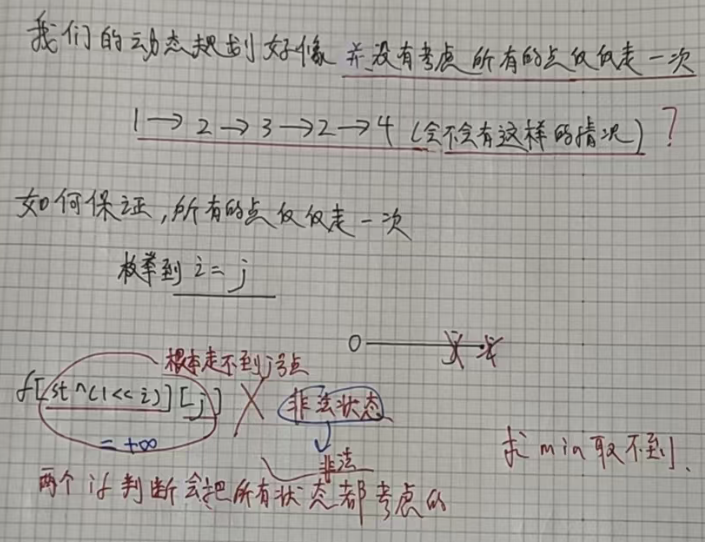 我们的动态规划好像并没有考虑所有的点仅仅走一次
1→2→3→2→4 (会不会有这样的情况)?
如何保证,所有的点仅仅走一次
枚举到 i = j
0
根本走不到j号点
f[st^(1<<i)][j] 非法状态
=+∞
非法
求 min 取不到.
两个 if 判断会把所有状态都考虑的